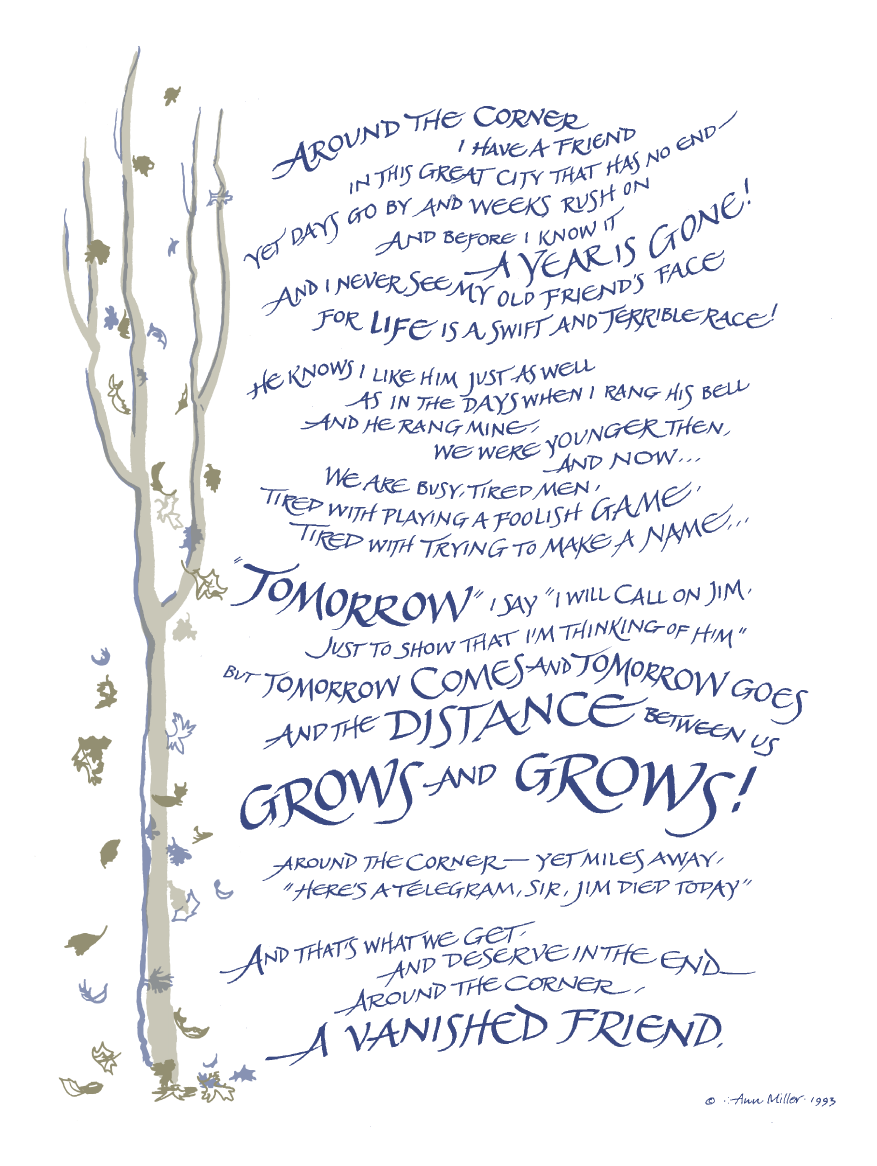 AROUND THE CORNER
I HAVE A FRIEND
IN THIS GREAT CITY THAT HAS NO END—
YET DAYS GO BY AND WEEKS RUSH ON
AND BEFORE I KNOW IT
A YEAR IS GONE!
AND I NEVER SEE MY OLD FRIEND'S FACE
FOR LIFE IS A SWIFT AND TERRIBLE RACE!
HE KNOWS I LIKE HIM JUST AS WELL
AS IN THE DAYS WHEN I RANG HIS BELL
AND HE RANG MINE,
WE WERE YOUNGER THEN,
AND NOW...
WE ARE BUSY, TIRED MEN,
TIRED WITH PLAYING A FOOLISH GAME,
TIRED WITH TRYING TO MAKE A NAME...
"TOMORROW" I SAY "I WILL CALL ON JIM,
JUST TO SHOW THAT I'M THINKING OF HIM"
BUT TOMORROW COMES AND TOMORROW GOES
AND THE DISTANCE BETWEEN US
GROWS AND GROWS!
AROUND THE CORNER— YET MILES AWAY,
"HERE'S A TELEGRAM, SIR, JIM DIED TODAY"
AND THAT'S WHAT WE GET,
AND DESERVE IN THE END
AROUND THE CORNER,
A VANISHED FRIEND.
© Ann Miller 1993